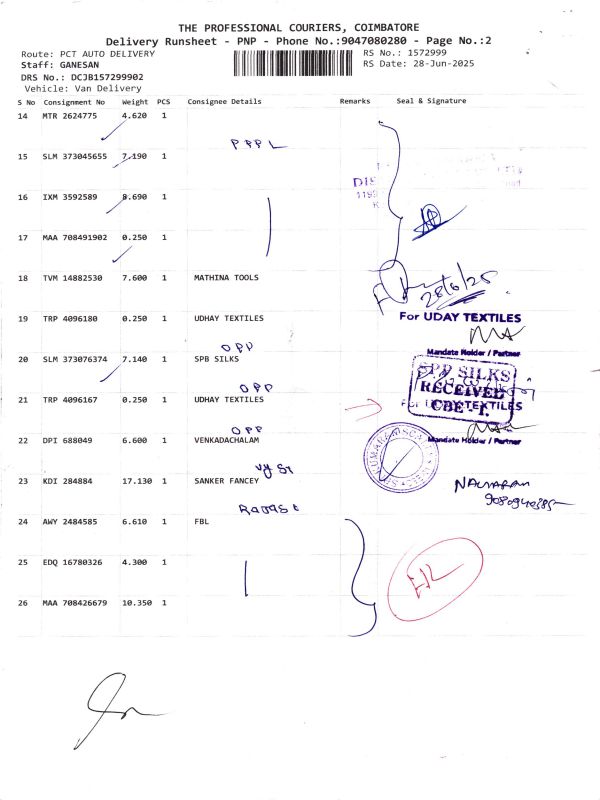 THE PROFESSIONAL COURIERS, COIMBATORE
Delivery Runsheet - PNP - Phone No.:9047080280 - Page No.:2
Route: PCT AUTO DELIVERY
RS No.: 1572999
Staff: GANESAN
RS Date: 28-Jun-2025
DRS No.: DCJB157299902
Vehicle: Van Delivery
S No Consignment No Weight PCS Consignee Details Remarks Seal & Signature
14 MTR 2624775 4.620 1
PPPL
15 SLM 373045655 7.190 1
16 IXM 3592589 8.690 1
17 MAA 708491902 0.250 1
18 TVM 14882530 7.600 1 MATHINA TOOLS
28/6/25
19 TRP 4096180 0.250 1 UDHAY TEXTILES
For UDAY TEXTILES
OPP
Mandate Holder / Partner
20 SLM 373076374 7.140 1 SPB SILKS
SPP SILKS
RECEIVED
CBE - 1.
OPP
21 TRP 4096167 0.250 1 UDHAY TEXTILES
For UDAY TEXTILES
OPP
22 DPI 688049 6.600 1 VENKADACHALAM
Mandate Holder / Partner
23 KDI 284884 17.130 1 SANKER FANCEY
24 AWY 2484585 6.610 1 FBL
25 EDQ 16780326 4.300 1
26 MAA 708426679 10.350 1